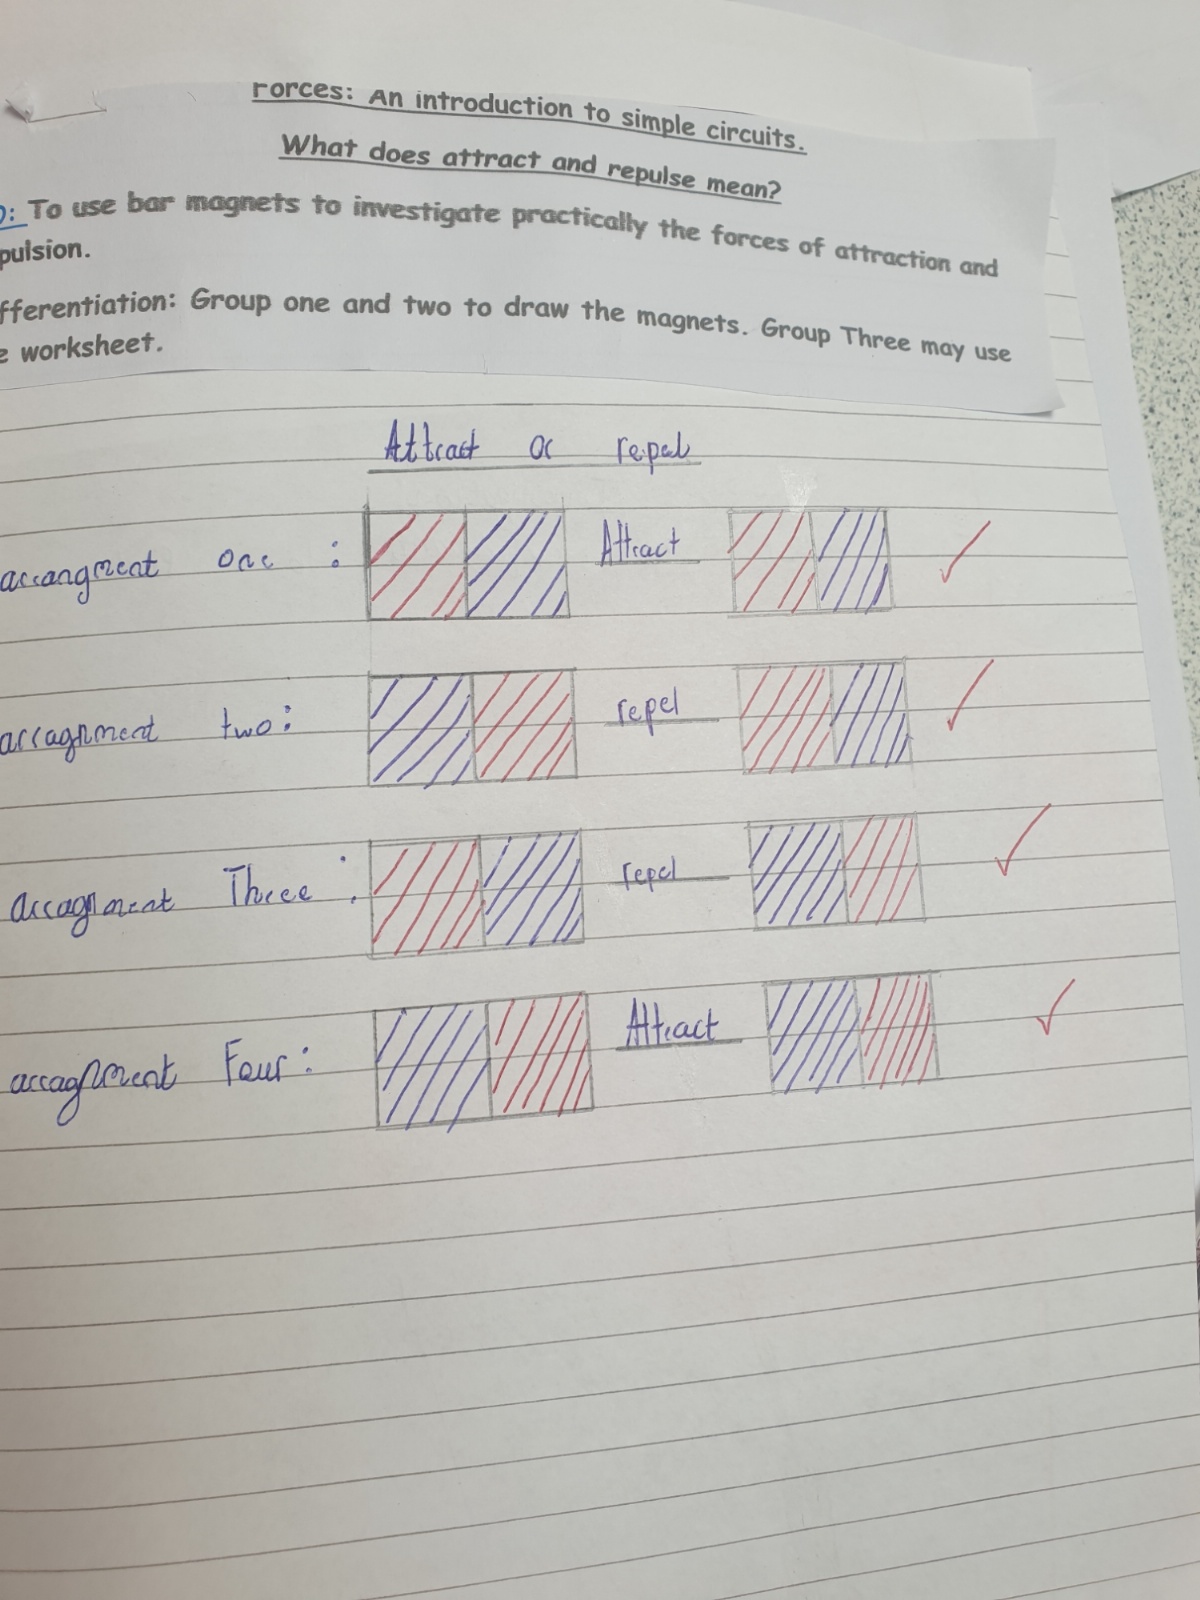 Forces: An introduction to simple circuits.
What does attract and repulse mean?
O: To use bar magnets to investigate practically the forces of attraction and
pulsion.
fferentiation: Group one and two to draw the magnets. Group Three may use
e worksheet.
Attract or repel
arrangment one : Attract
arragnment two: repel
arragnment Three : repel
arragnment Four: Attract